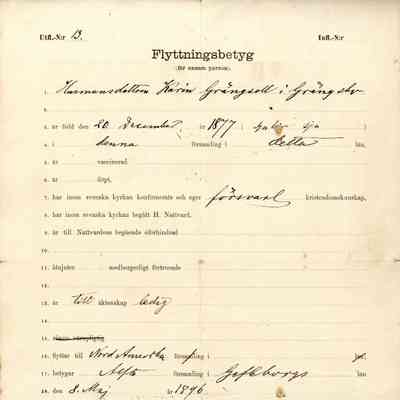 Utfl.-N:r 13. Infl.-N:r
Flyttningsbetyg
(för ensam person).
1. Hemmansdottern Karin Grängsell i Grängsbo
2.
3. är född den 20 December år 1877 (sjutio sju)
4. i denna församling i detta län,
5. är vaccinerad
6. är döpt,
7. har inom svenska kyrkan konfirmerats och eger försvarl kristendomskunskap,
8. har inom svenska kyrkan begått H. Nattvard.
9. är till Nattvardens begående oförhindrad
10.
11. åtnjuter medborgerligt förtroende
12.
13. är till äktenskap ledig
14.
15.
16. flyttar till Nord Amerika församling i län.
17. betygar Alfta församling i Gefleborgs län
18. den 8 Maj år 1896